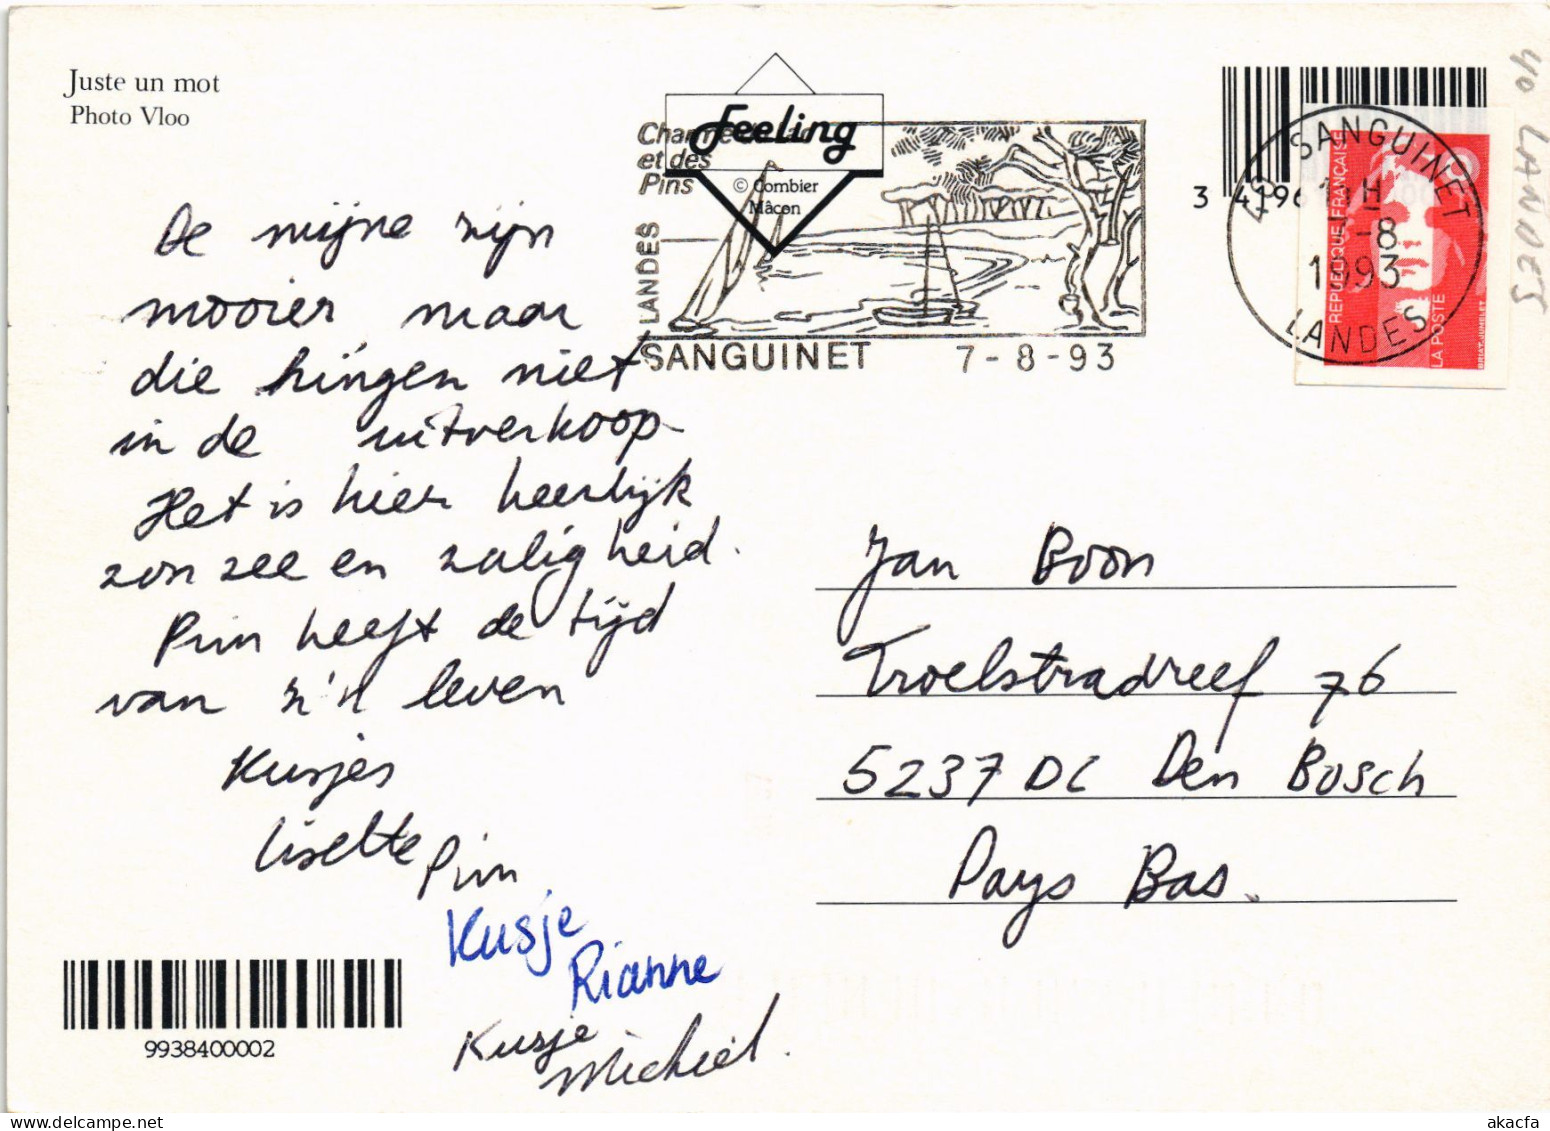 Juste un mot
Photo Vloo
Feeling
© Combier
Mâcon
et des
Pins
LANDES
SANGUINET 7-8-93
3 4196
SANGUINET
H
-8
1993
LANDES
REPUBLIQUE FRANÇAISE
LA POSTE
40 LANDES
De mijne zijn
mooier maar
die hingen niet
in de uitverkoop
Het is hier heerlijk
zon zee en zaligheid.
Pim heeft de tijd
van z'n leven
Kusjes
Lisette Pim
Kusje
Rianne
Kusje
Michiel.
Jan Boon
Troelstradreef 76
5237 DC Den Bosch
Pays Bas.
9938400002
delcampe.net
akacfa